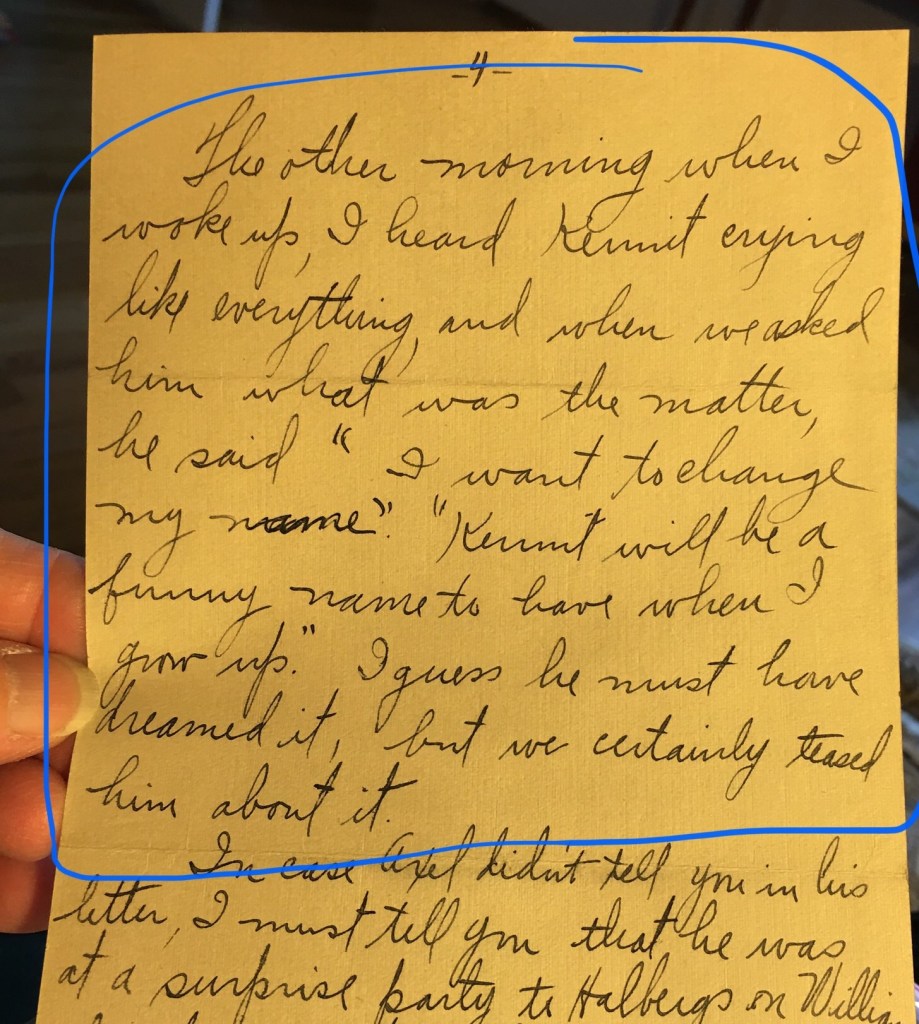 -4-
The other morning when I
woke up, I heard Kermit crying
like everything, and when we asked
him what was the matter,
he said " I want to change
my name". "Kermit will be a
funny name to have when I
grow up." I guess he must have
dreamed it, but we certainly teased
him about it.
In case Axel didn't tell you in his
letter, I must tell you that he was
at a surprise party to Halbergs on